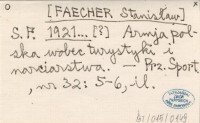 [FAECHER Stanisław]
S.F. 1921... [?] Armja pol-
ska wobec turystyki i
narciarstwa. – Prz. Sport.
, nr 32: 5-6, il.